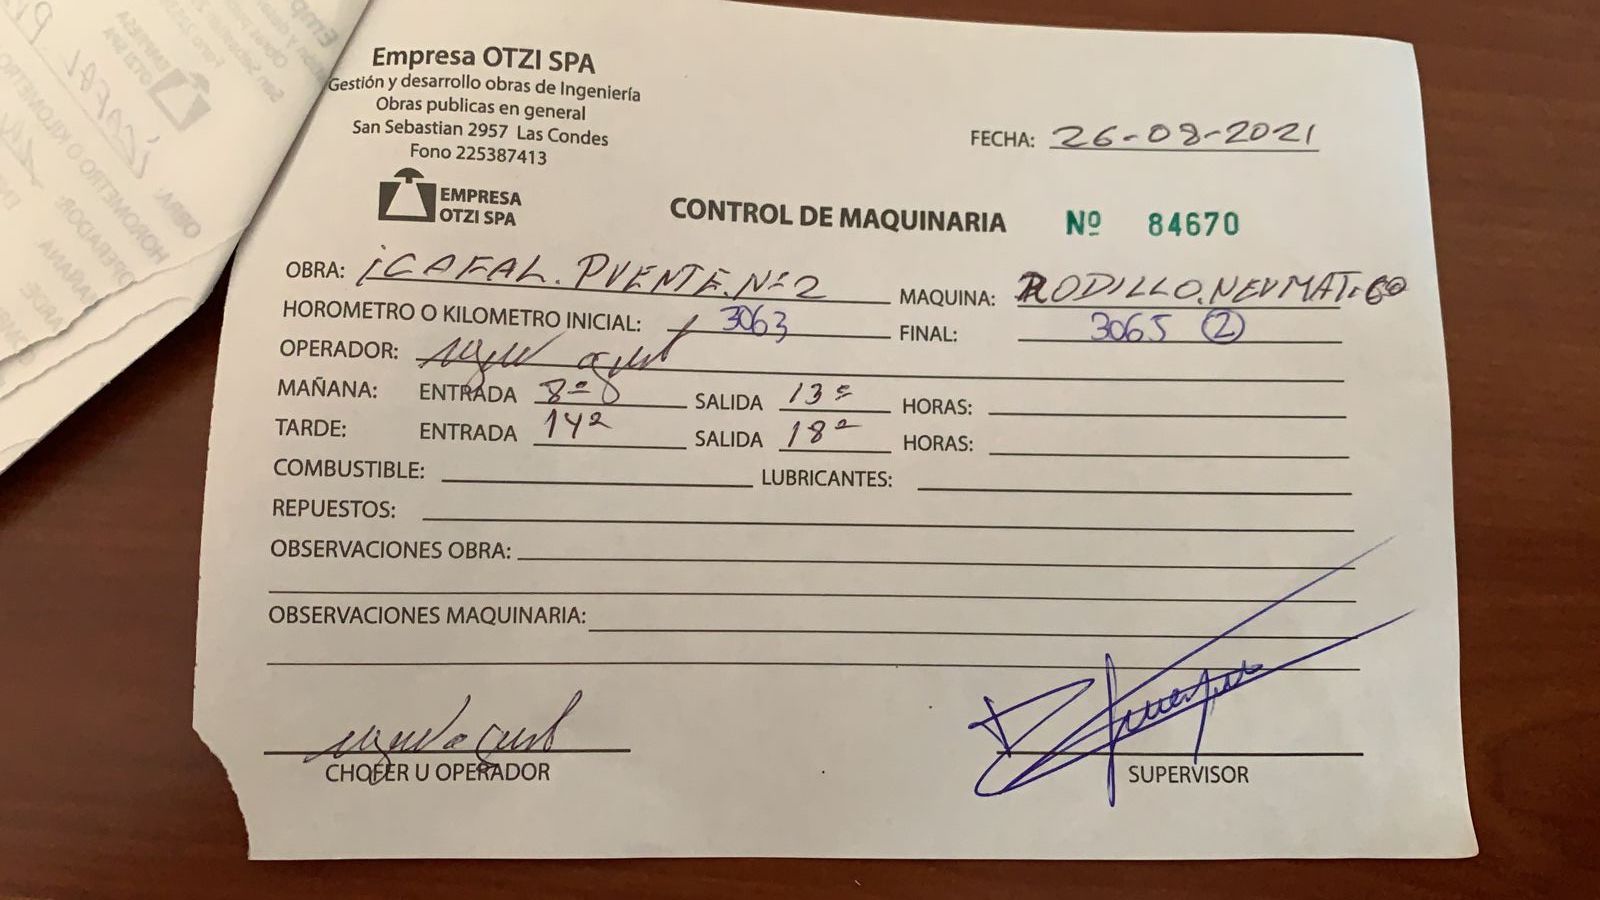 Empresa OTZI SPA
Gestión y desarrollo obras de Ingeniería
Obras publicas en general
San Sebastian 2957 Las Condes
Fono 225387413
EMPRESA
OTZI SPA
FECHA: 26-08-2021
CONTROL DE MAQUINARIA Nº 84670
OBRA: iCAFAL. PUENTE. Nº 2 MAQUINA: RODILLO. NEUMATICO
HOROMETRO O KILOMETRO INICIAL: 3063 FINAL: 3065 (2)
OPERADOR:
MAÑANA: ENTRADA 8º SALIDA 13º HORAS:
TARDE: ENTRADA 14º SALIDA 18º HORAS:
COMBUSTIBLE: LUBRICANTES:
REPUESTOS:
OBSERVACIONES OBRA:
OBSERVACIONES MAQUINARIA:
CHOFER U OPERADOR SUPERVISOR